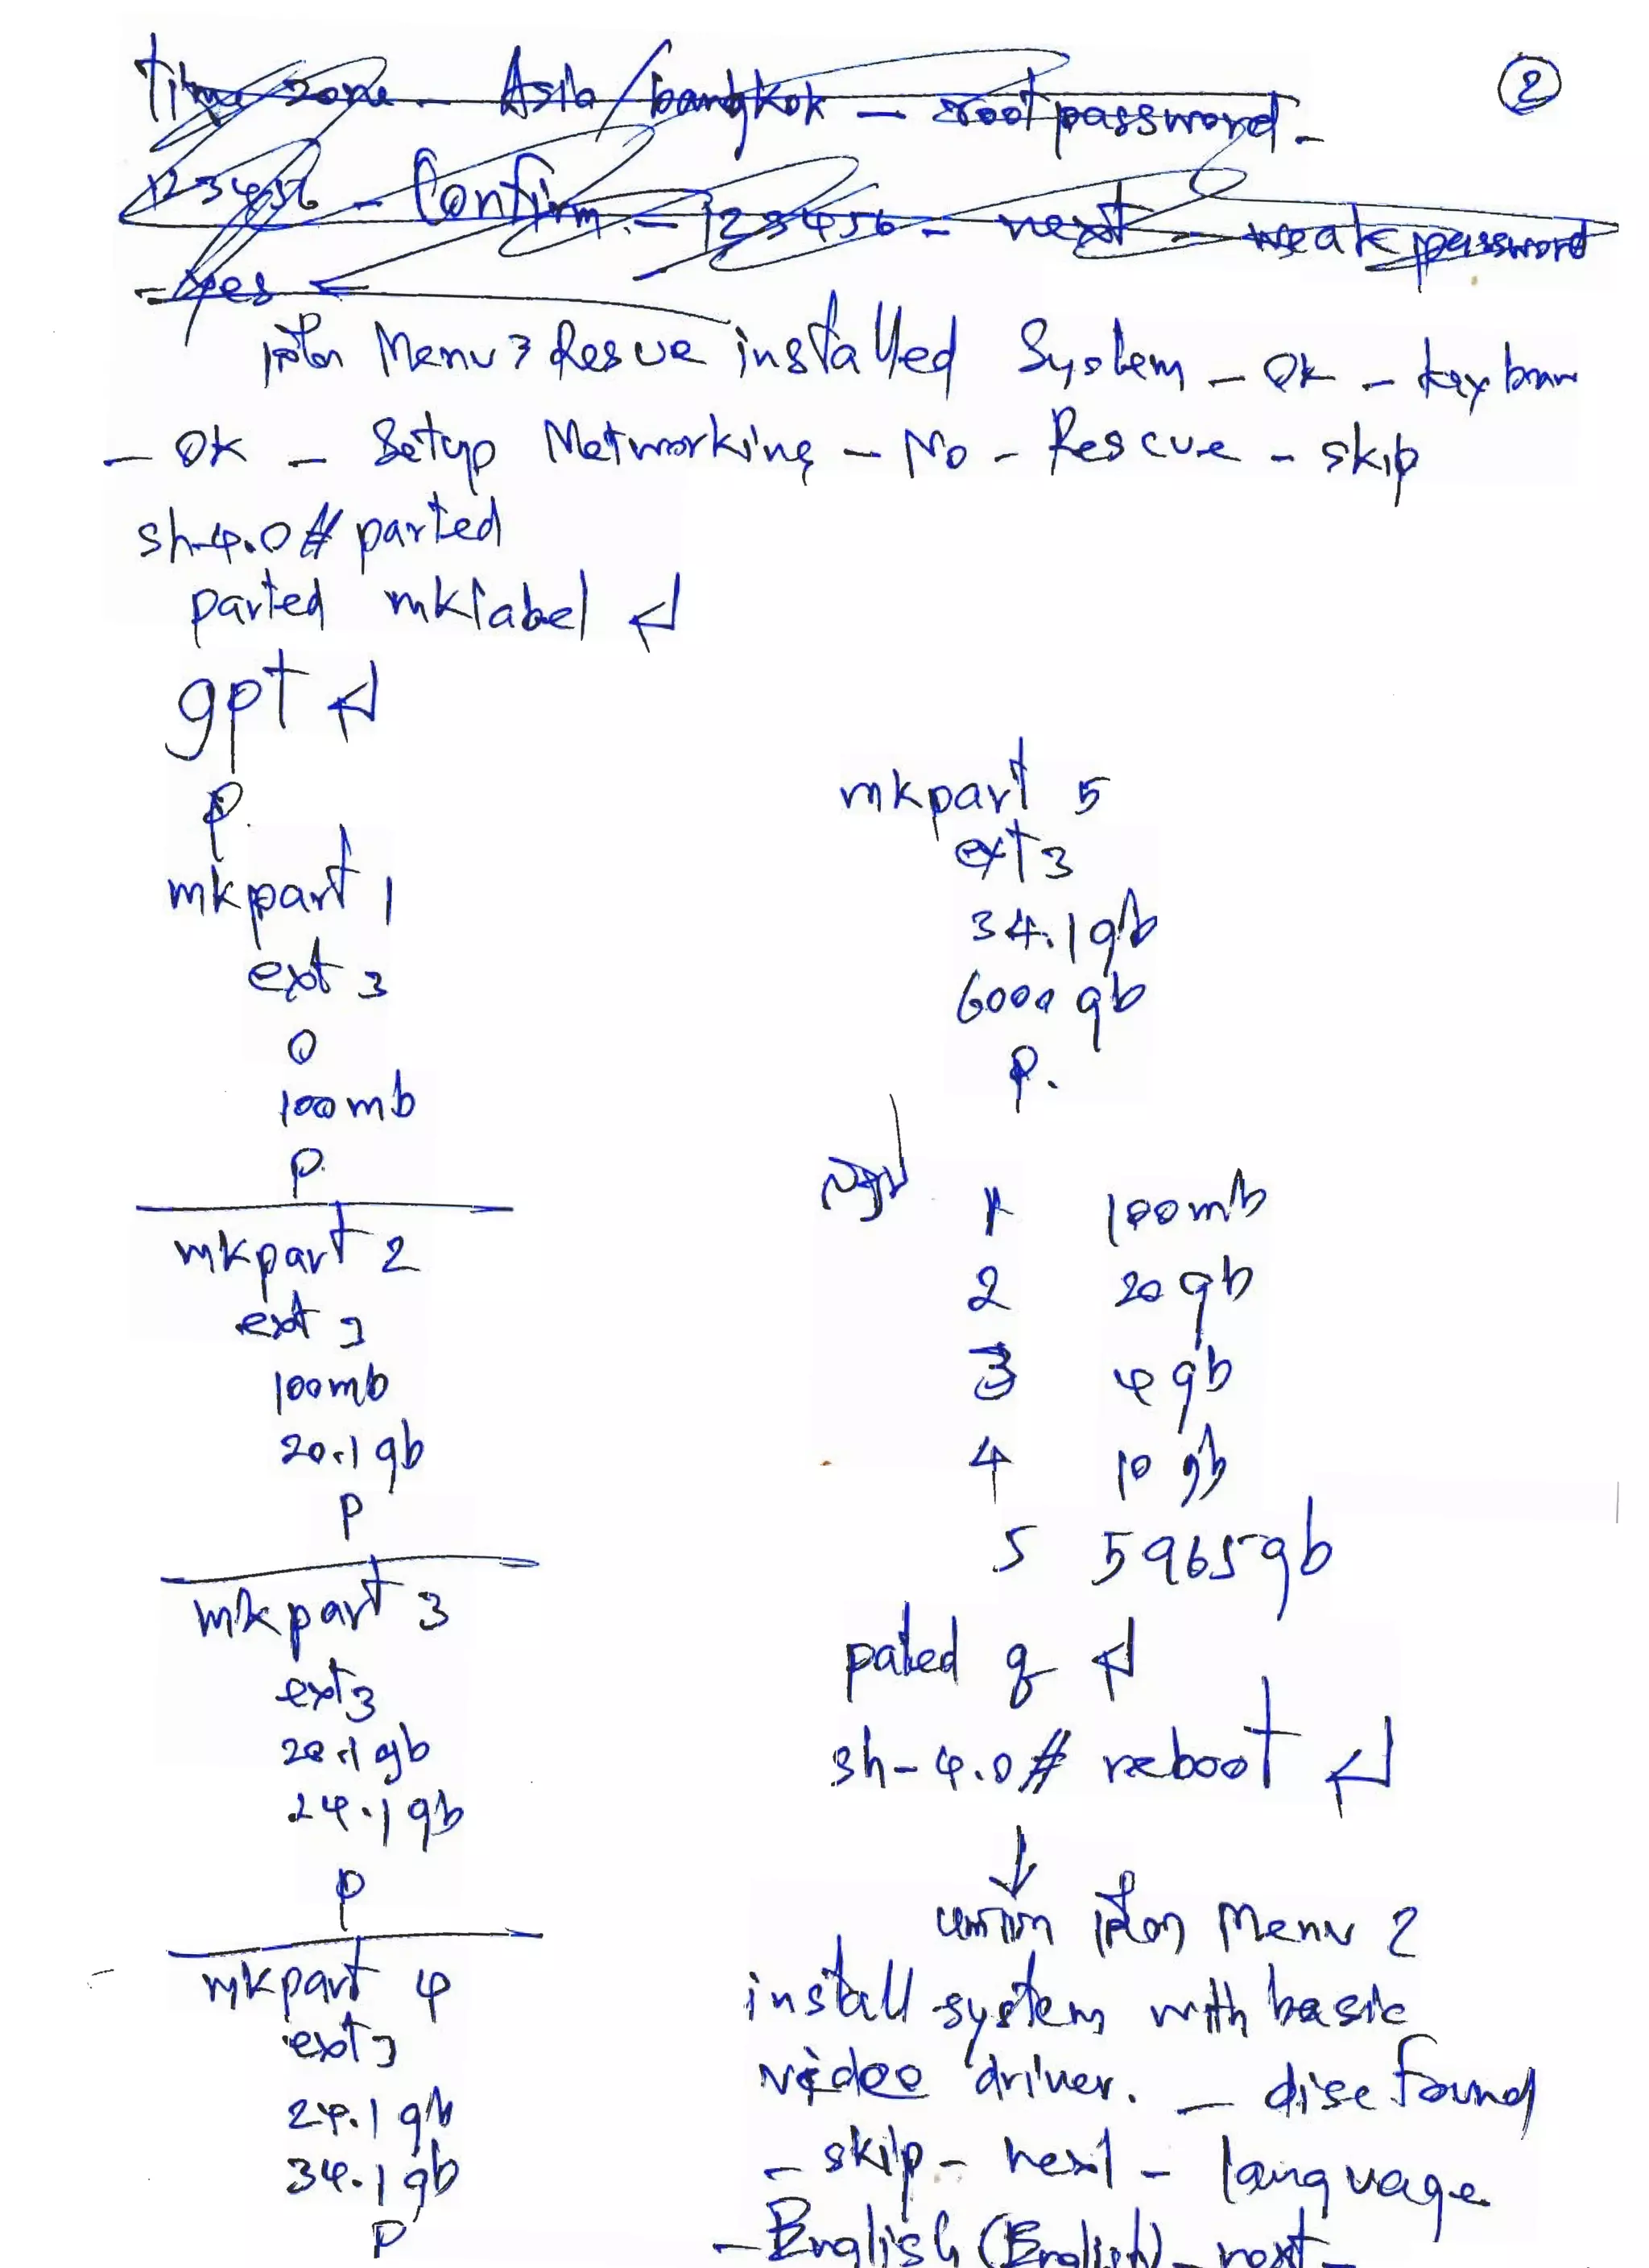 ②
Time zone - Asia/bangkok - root password -
123456 - Confirm - 123456 - next - weak password
- yes ↵
เลือก Menu 3 Resue installed System - OK -
- OK - Setup Networking - No - Rescue - skip
sh-4.0# parted
parted mklabel ↵
gpt ↵
p.
mkpart 1
ext 3
0
100mb
p.
mkpart 2
ext 3
100mb
20.1 gb
p
mkpart 3
ext 3
20.1 gb
24.1 gb
p
mkpart 4
ext 3
24.1 gb
34.1 gb
p
mkpart 5
ext 3
34.1 gb
6000 gb
p.
สรุป 1 100mb
2 20 gb
3 4 gb
4 10 gb
5 5965 gb
pated q ↵
sh-4.0# reboot ↵
↓
เลือก Menu 2
install system with basic
video driver. - disc found
- skip - next - language
- English (English) - next -